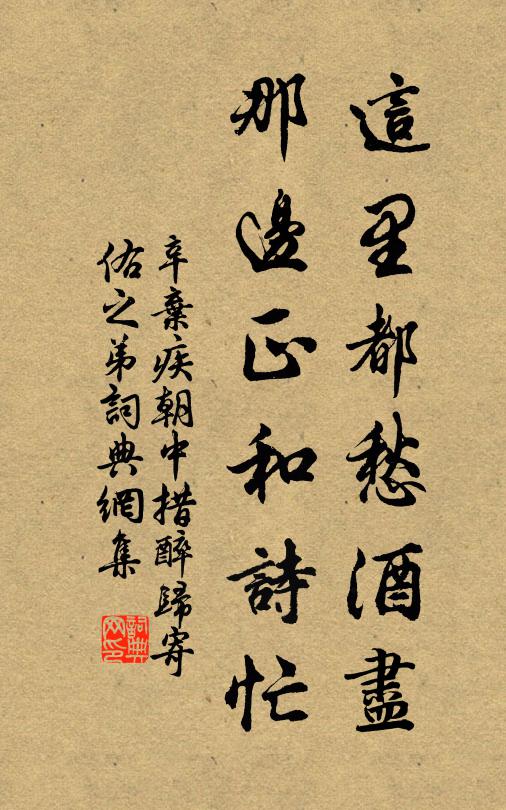 這里都愁酒盡
那邊正和詩忙
辛棄疾朝中措醉歸寄
佑之弟詞典網集
詞典网印